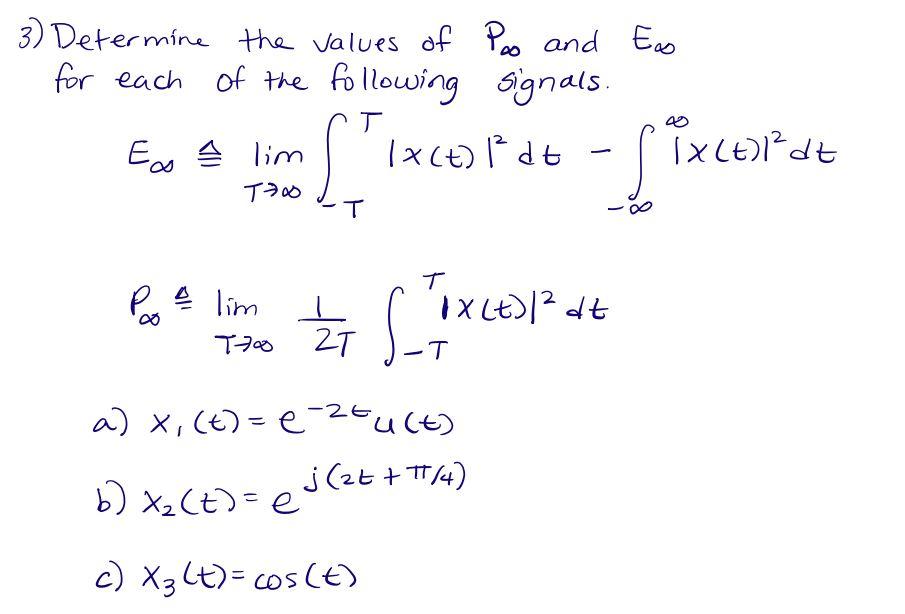 3) Determine the values of P∞ and E∞
for each of the following signals.
E∞ ≜ lim T→∞ ∫_{-T}^{T} |x(t)|² dt - ∫_{-∞}^{∞} |x(t)|² dt
P∞ ≜ lim T→∞ 1/2T ∫_{-T}^{T} |x(t)|² dt
a) x₁(t) = e^{-2t} u(t)
b) x₂(t) = e^{j(2t + π/4)}
c) x₃(t) = cos(t)